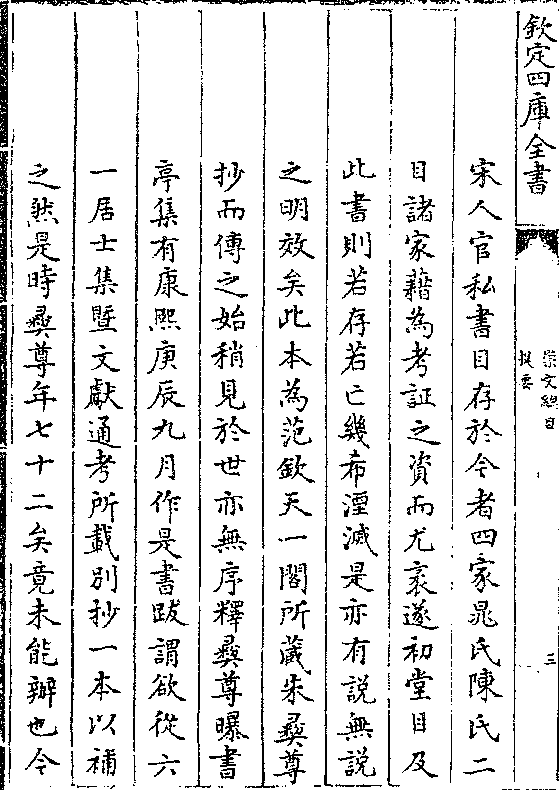 欽定四庫全書
崇文總目
提要
三
宋人官私書目存於今者四家晁氏陳氏二
目諸家藉為考証之資而尤袤遂初堂目及
此書則若存若亡幾希湮滅是亦有說無說
之明效矣此本為范欽天一閣所藏朱彞尊
抄而傳之始稍見於世亦無序釋彞尊曝書
亭集有康熙庚辰九月作是書跋謂欲從六
一居士集暨文獻通考所載別抄一本以補
之然是時彞尊年七十二矣竟未能辦也今